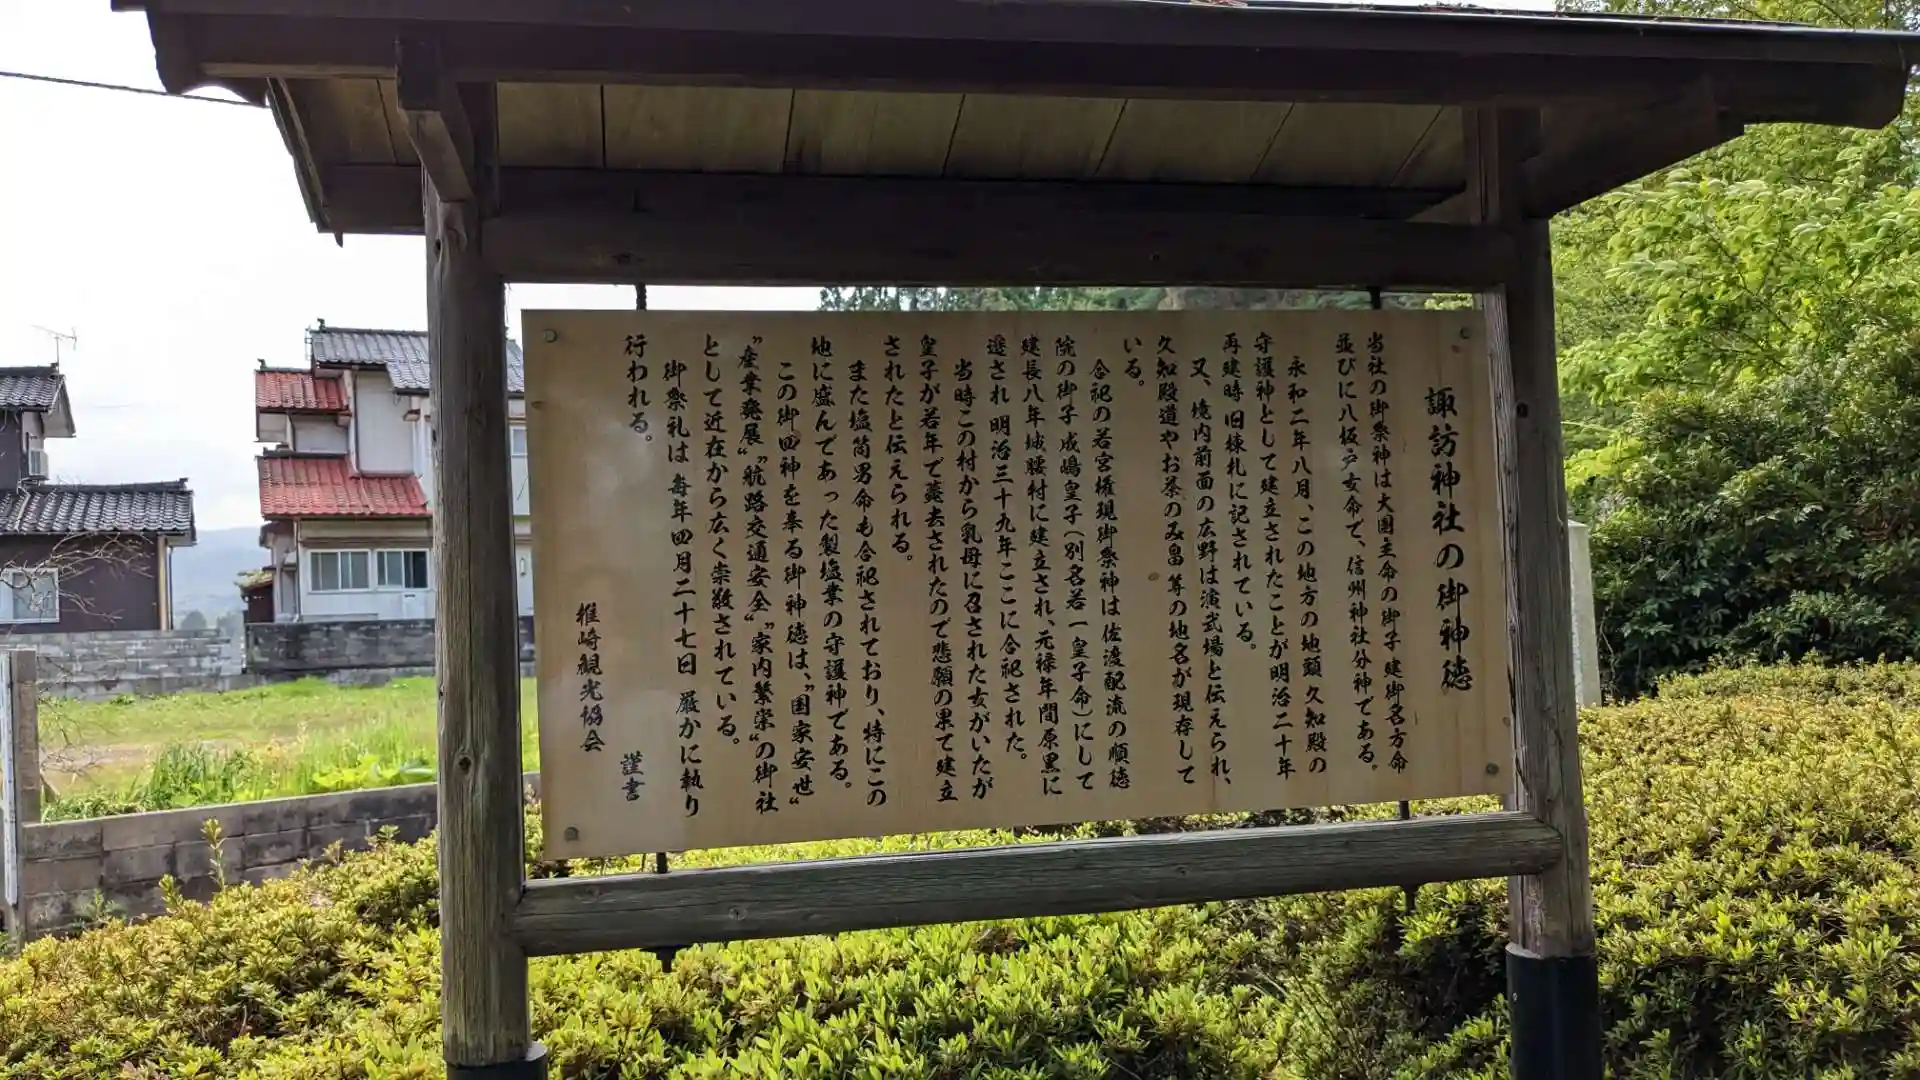 諏訪神社の御神徳
当社の御祭神は大国主命の御子 建御名方命
並びに八坂戸女命で、信州神社分神である。
永和二年八月、この地方の地頭 久知殿の
守護神として建立されたことが明治二十年
再建時 旧棟札に記されている。
又、境内前面の広野は演武場と伝えられ、
久知殿道やお茶のみ畠 等の地名が現存して
いる。
合祀の若宮権現御祭神は佐渡配流の順徳
院の御子 成嶋皇子（別名若一皇子命）にして
建長八年城腰村に建立され、元禄年間原黒に
遷され 明治三十九年ここに合祀された。
当時この村から乳母に召された女がいたが
皇子が若年で薨去されたので悲願の果て建立
されたと伝えられる。
また塩筒男命も合祀されており、特にこの
地に盛んであった製塩業の守護神である。
この御四神を奉る御神徳は、〝国家安世〟
〝産業発展〟〝航路交通安全〟〝家内繁栄〟の御社
として近在から広く崇敬されている。
御祭礼は 毎年四月二十七日 厳かに執り
行われる。
謹書
椎崎観光協会